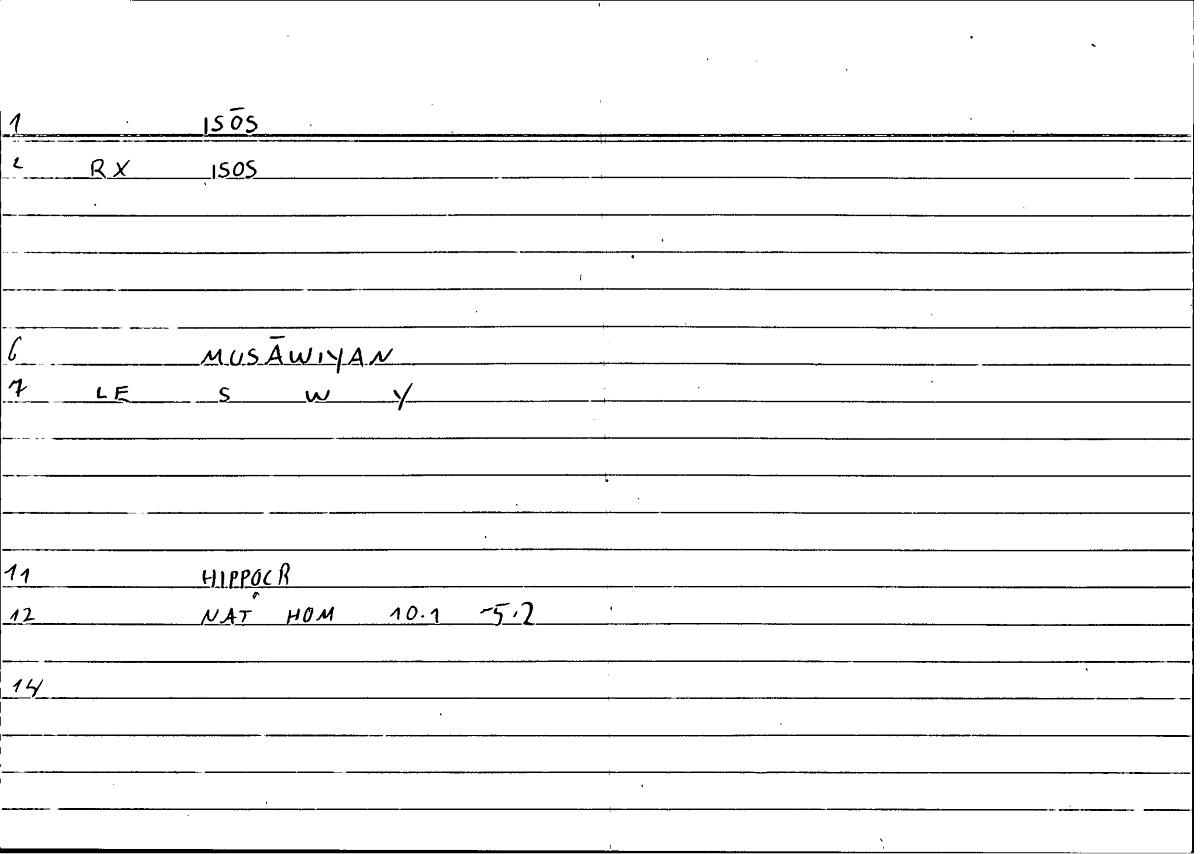 1 ISŌS
2 RX ISOS
6 MUSĀWIYAN
7 LE S W Y
11 HIPPOCR
12 NAT HOM 10.1 -5.2
14